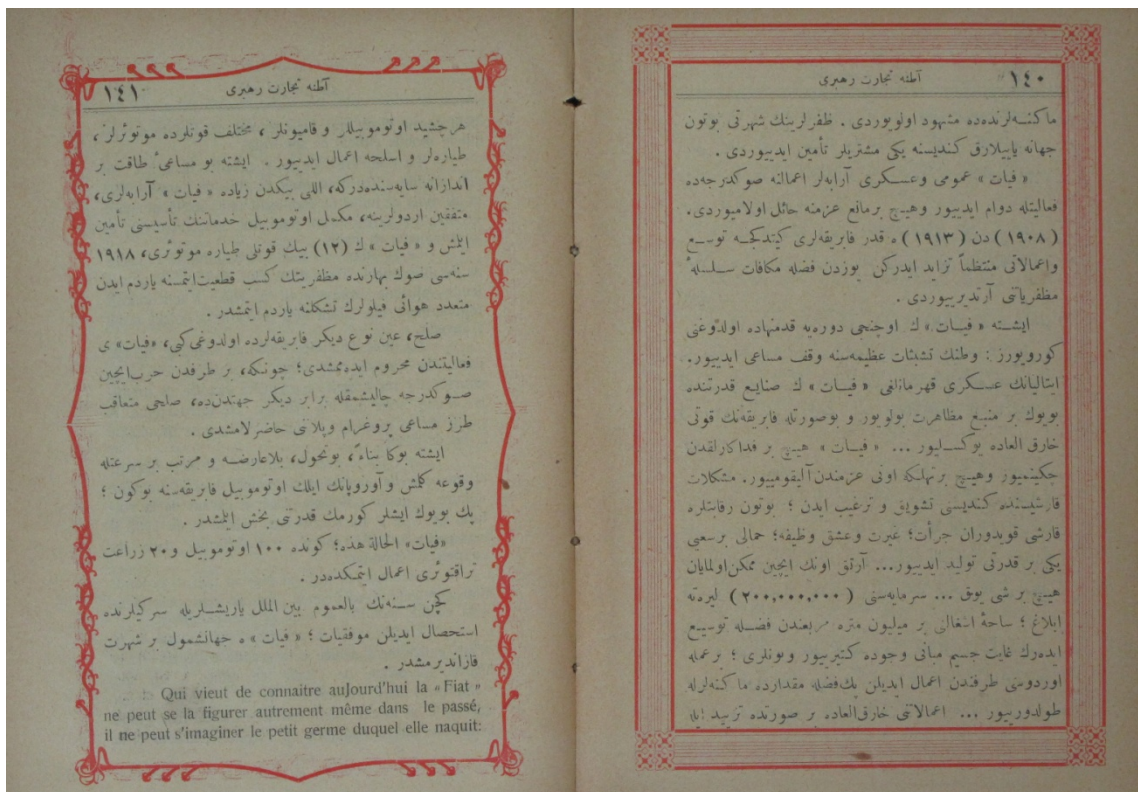 آطنه تجارت رهبری ١٤٠
ماكنه‌لرنده‌ده مشهود اولویوردی . ظفرلرینك شهرتی بوتون
جهانه یاییلارق كندیسنه یكی مشتریلر تأمین ایدییوردی .
« فیات » عمومی وعسكری آرابه‌لر اعمالنه صوكدرجه‌ده
فعالیتله دوام ایدییور وهیچ برمانع عزمنه حائل اولامیوردی.
( ١٩٠٨ ) دن ( ١٩١٣ ) ه قدر فابریقه‌لری كیتدكجه توسع
واعمالاتی منتظماً تزاید ایدركن یوزدن فضله مكافات سلسلهٔ
مظفریاتنی آرتدیرییوردی .
ایشته « فیات » ك اوچنجی دوره‌یه قدمنهاده اولدوغنی
كورویورز : وطنك تشبثات عظیمه‌سنه وقف مساعی ایدییور.
ایتالیانك عسكری قهرمانلغی « فیات » ك صنایع قدرتنده
بویوك بر منبع مظاهرت بولویور و بوصورتله فابریقه‌نك قوتی
خارق العاده یوكسلیور ... « فیات » هیچ بر فداكارلقدن
چكینمیور وهیچ برتهلكه اونی عزمندن آلیقومییور. مشكلات
قارشیسنده كندیسی تشویق و ترغیب ایدن ؛ بوتون رقابتلره
قارشی قویدوران جرأت؛ غیرت وعشق وظیفه؛ حمالی برسعیی
یكی بر قدرتی تولید ایدییور... آرتق اونك ایچین ممكن اولمایان
هیچ بر شی یوق ... سرمایه‌سنی ( ٢٠٠,٠٠٠,٠٠٠ ) لیره‌ته
ابلاغ ؛ ساحهٔ اشغالی بر میلیون متره مربعندن فضله توسیع
ایده‌رك غایت جسیم مبانی وجوده كتیرییور وبونلری ؛ برعمله
اوردوسی طرفندن اعمال ایدیلن پك‌فضله مقدارده ماكنه‌لرله
طولدورییور ... اعمالاتنی خارق‌العاده بر صورتده تزیید ایله
آطنه تجارت رهبری ١٤١
هرچشید اوتوموبیللر و قامیونلر ، مختلف قوتلرده موتوئرلر ،
طیاره‌لر و اسلحه اعمال ایدییور . ایشته بو مساعیٔ طاقت بر
اندازانه سایه‌سنده‌دركه، اللی بیكدن زیاده « فیات » آرابه‌لری،
متفقین اردولرینه، مكمل اوتوموبیل خدماتنك تأسیسنی تأمین
ایتمش و « فیات » ك (١٢) بیك قوتلی طیاره موتوئری، ١٩١٨
سنه‌سی صوك بهارنده مظفریتك كسب قطعیت‌ایتمسنه یاردم ایدن
متعدد هوائی فیلولرك تشكلنه یاردم ایتمشدر .
صلح، عین نوع دیكر فابریقه‌لرده اولدوغی‌كبی، «فیات» ی
فعالیتندن محروم ایده‌ممشدی؛ چونكه، بر طرفدن حرب‌ایچین
صوكدرجه چالیشمقله برابر دیكر جهتدن‌ده، صلحی متعاقب
طرز مساعی پروغرام وپلاننی حاضرلامشدی .
ایشته بوكا بناءً، بوتحول، بلاعارضه و مرتب بر سرعتله
وقوعه كلمش و آوروپانك ایلك اوتوموبیل فابریقه‌سنه بوكون ؛
پك بویوك ایشلر كورمك قدرتنی بخش ایتمشدر .
«فیات» الحالة هذه؛ كونده ١٠٠ اوتوموبیل و٢٠ زراعت
تراقتوئری اعمال ایتمكده‌در .
كچن سنه‌نك بالعموم بین الملل یاریشلریله سركیلرنده
استحصال ایدیلن موفقیات ؛ « فیات » ه جهانشمول بر شهرت
قازاندیرمشدر .
Qui vieut de connaitre auJourd'hui la «Fiat»
ne peut se la figurer autrement même dans le passé,
il ne peut s'imaginer le petit germe duquel elle naquit: